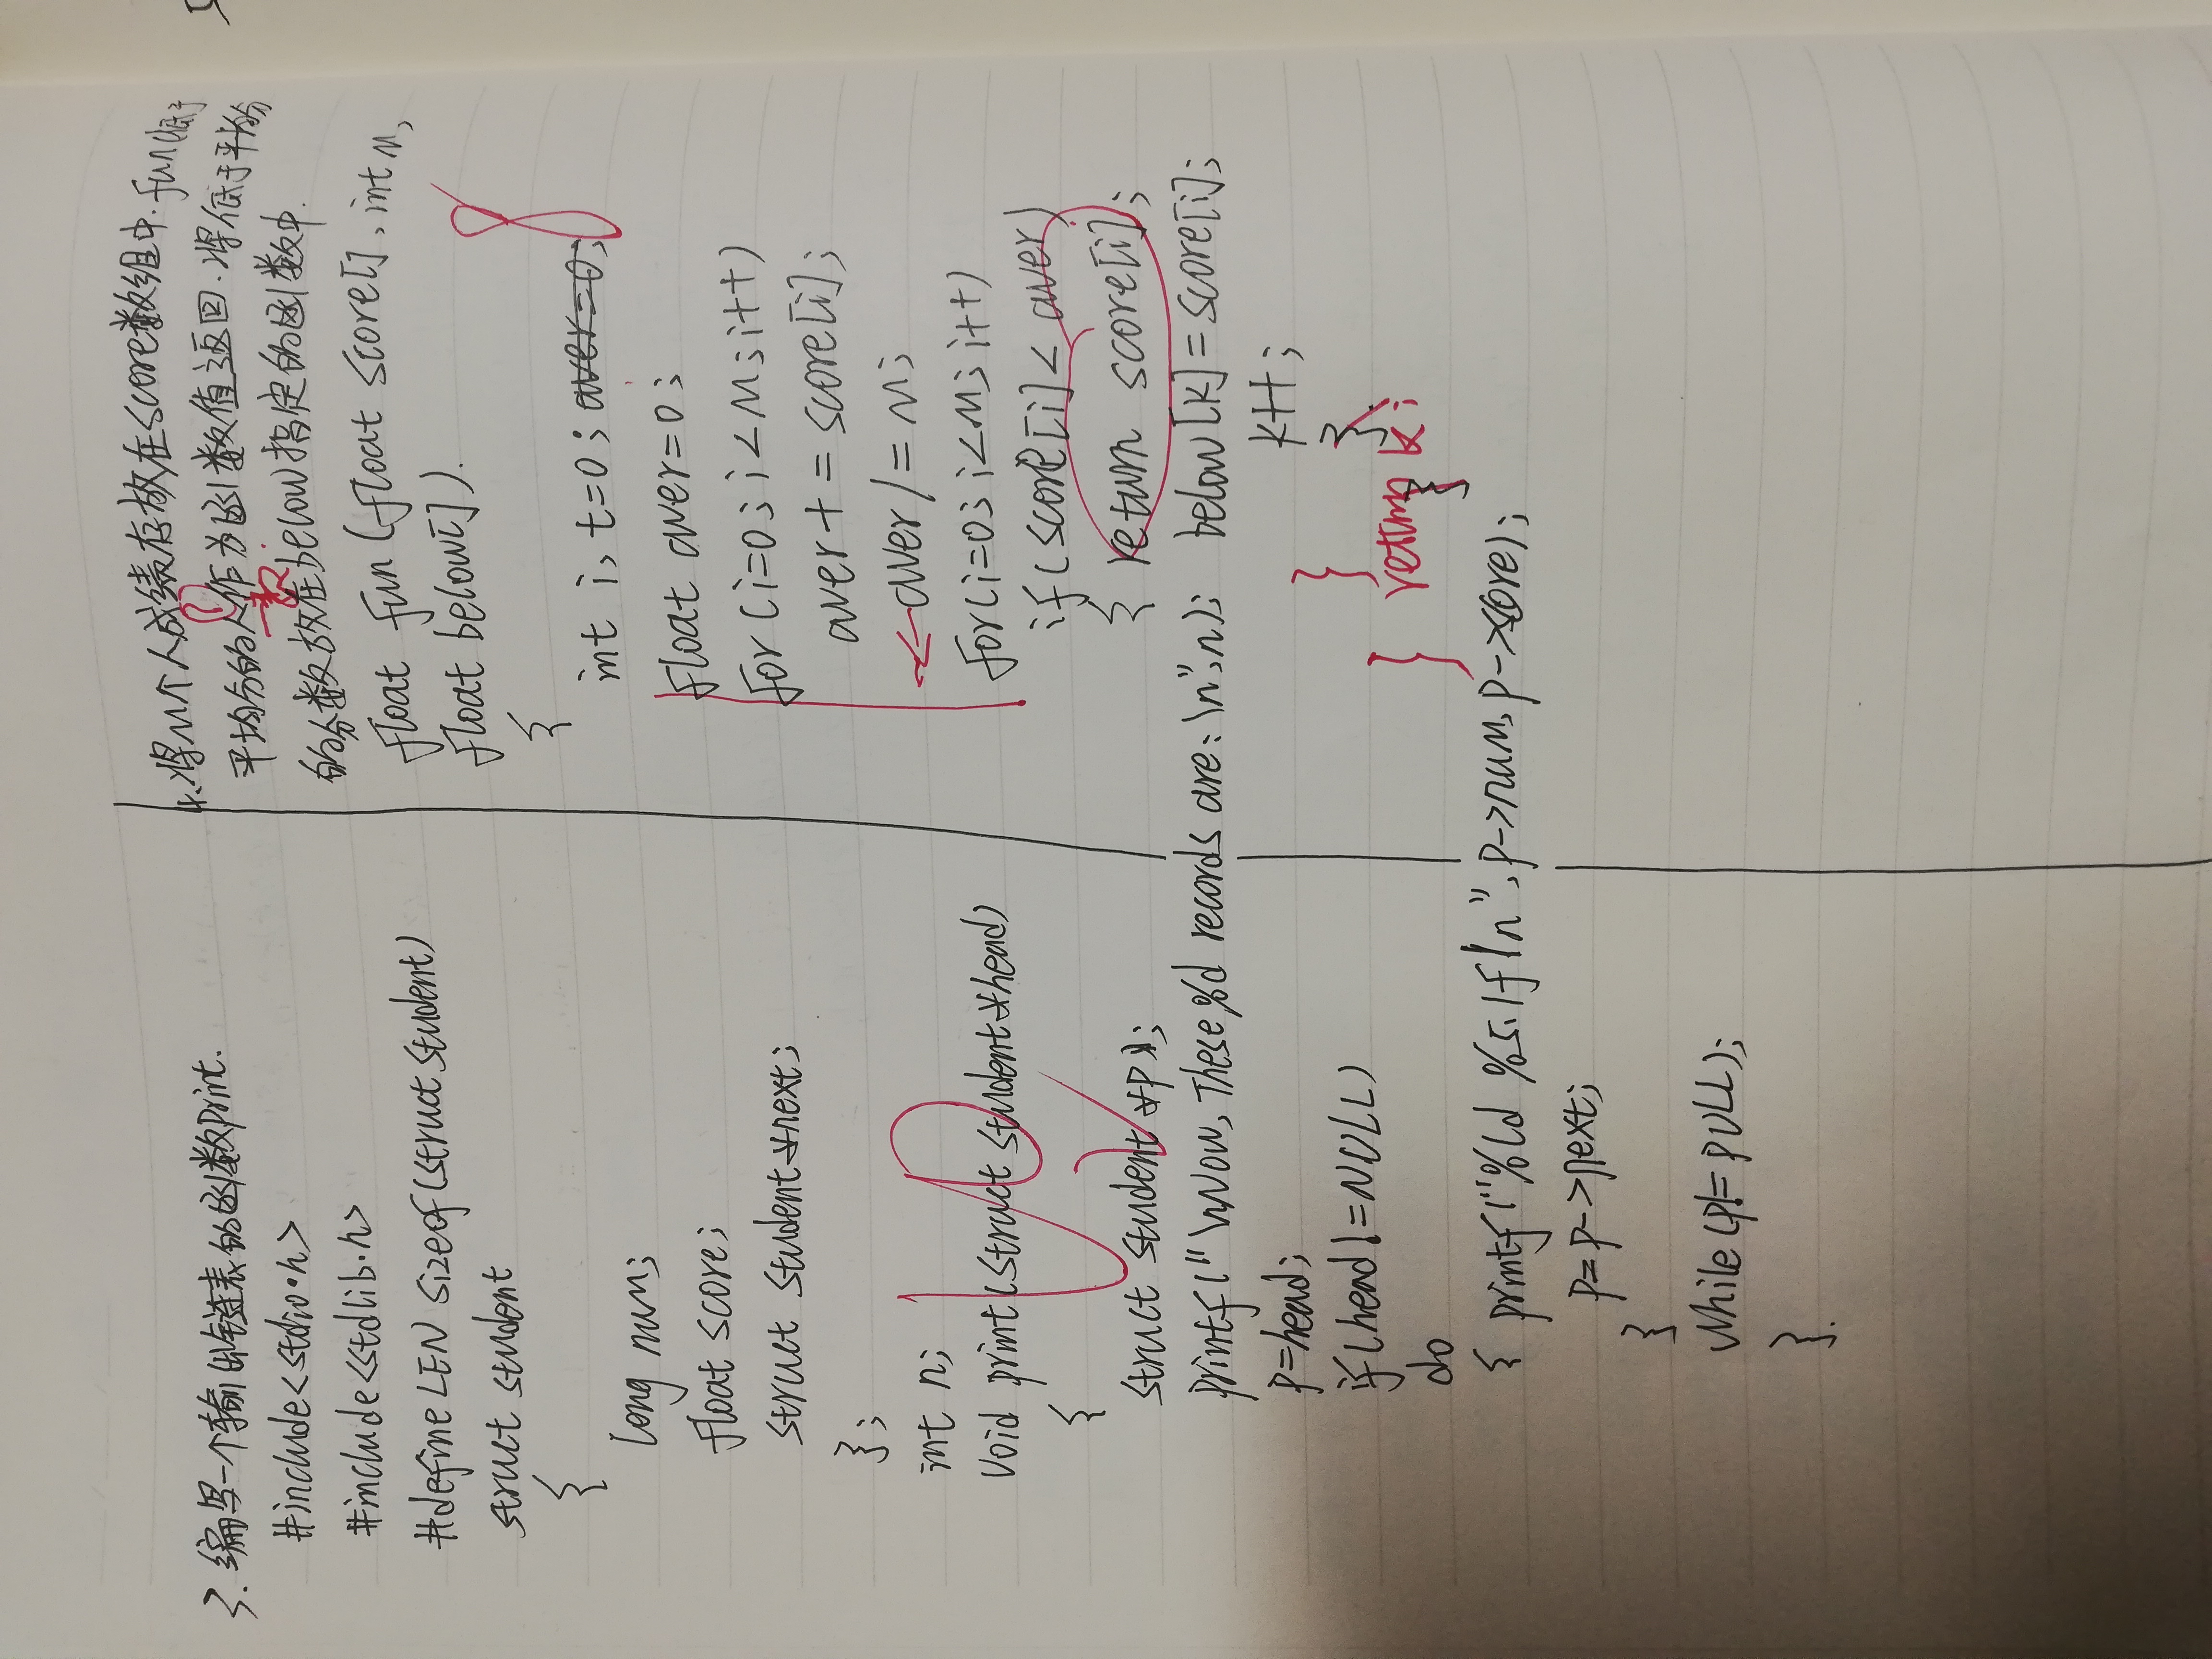 3. 编写一个输出链表的函数print.
#include<stdio.h>
#include<stdlib.h>
#define LEN sizeof(struct student)
struct student
{
long num;
float score;
struct student*next;
};
int n;
void print(struct student*head)
{
struct student*p;
printf("\nNow, These %d records are:\n",n);
p=head;
if(head!=NULL)
do
{ printf("%ld %5.1f\n",p->num,p->score);
p=p->next;
}
while(p!=PULL);
}.
4.将m个人成绩存放在score数组中.fun(低于
平均分的人作为函数值返回.将低于平均分
数
的分数放在below搞定的函数中.
float fun(float score[],int m,
float below[]).
{
int i,t=0;aver=0;
float aver=0;
for(i=0;i<m;i++)
aver+=score[i];
aver/=m;
for(i=0;i<m;i++)
if(score[i]<aver)
{ return score[i];
below[k]=score[i];
k++;
}
}
return k;
}
}